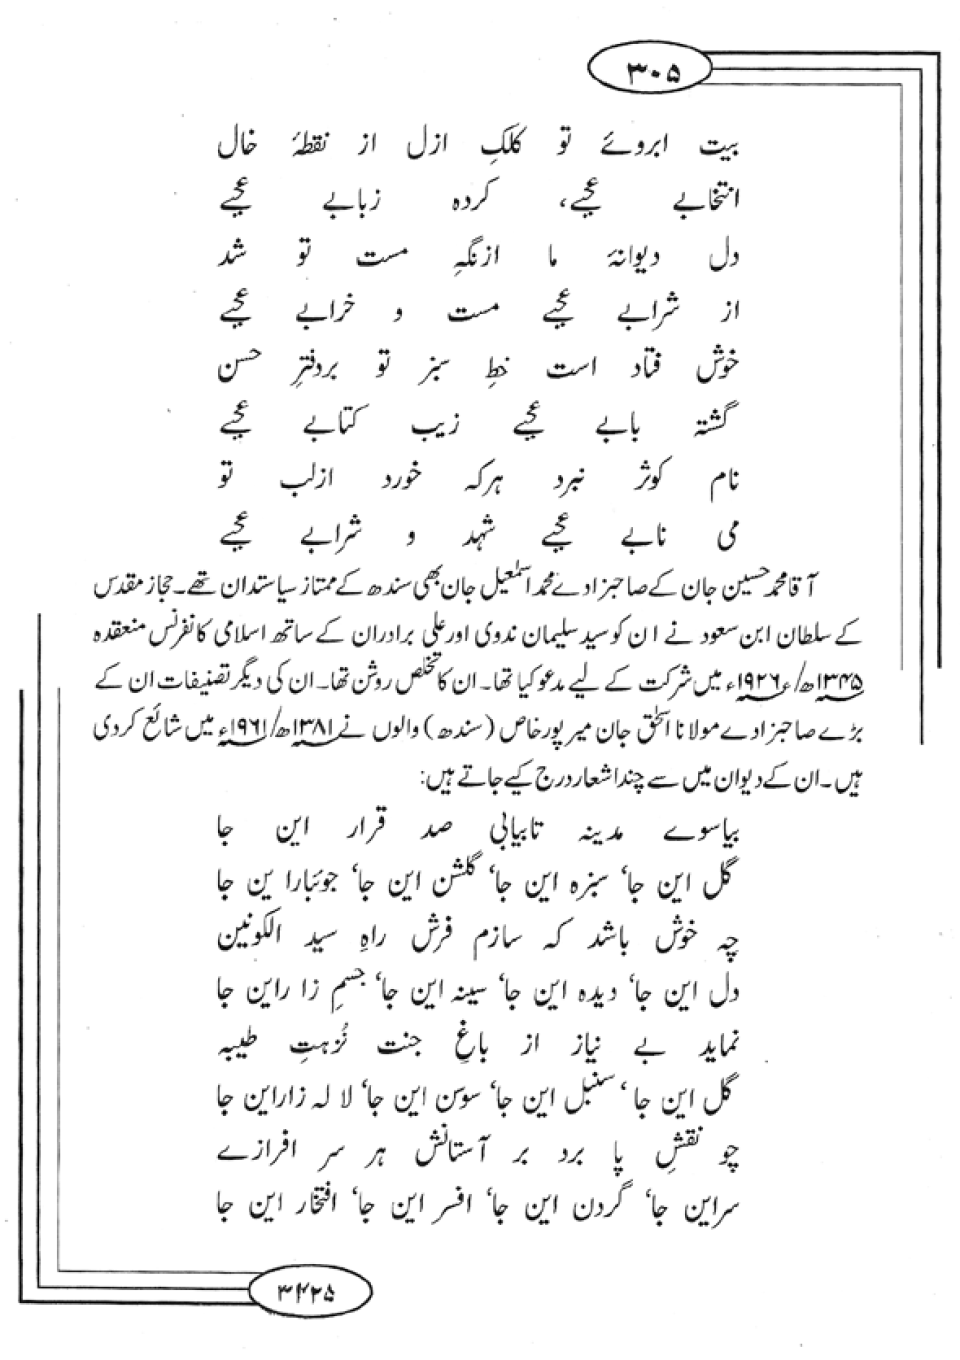 ۳۰۵
بیت ابروئے تو کلکِ ازل از نقطۂ خال
انتخابے عجبے، کردہ زبابے عجبے
دل دیوانۂ ما ازنگہِ مست تو شد
از شرابے عجبے مست و خرابے عجبے
خوش فتاد است خطِ سبز تو بردفترِ حسن
گشتہ بابے عجبے زیب کتابے عجبے
نام کوثر نبرد ہرکہ خورد ازلب تو
می نابے عجبے شہد و شرابے عجبے
آقا محمد حسین جان کے صاحبزادے محمد اسمٰعیل جان بھی سندھ کے ممتاز سیاستدان تھے۔ حجاز مقدس
کے سلطان ابن سعود نے ان کو سید سلیمان ندوی اور علی برادران کے ساتھ اسلامی کانفرنس منعقدہ
۱۳۴۵ھ/۱۹۲۶ء میں شرکت کے لیے مدعو کیا تھا۔ ان کا تخلص روشن تھا۔ ان کی دیگر تصنیفات ان کے
بڑے صاحبزادے مولانا اسحٰق جان میرپورخاص (سندھ) والوں نے ۱۳۸۱ھ/۱۹۶۱ء میں شائع کردی
ہیں۔ ان کے دیوان میں سے چند اشعار درج کیے جاتے ہیں:
بیاسوے مدینہ تابیابی صد قرار این جا
گل این جا، سبزہ این جا، گلشن این جا، جوئبارا ین جا
چہ خوش باشد کہ سازم فرش راہِ سید الکونین
دل این جا، دیدہ این جا، سینہ این جا، جسمِ زا راین جا
نماید بے نیاز از باغِ جنت نُزہتِ طیبہ
گل این جا، سنبل این جا، سوسن این جا، لا لہ زاراین جا
چو نقشِ پا برد بر آستانش ہر سر افرازے
سراین جا، گردن این جا، افسر این جا، افتخار این جا
۳۴۲۵